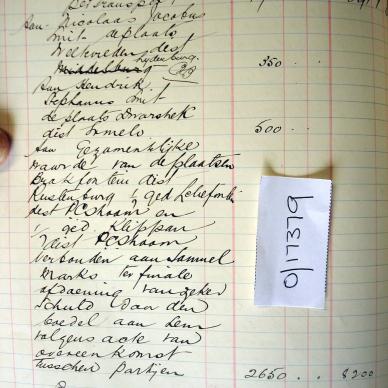 Aan Nicolaas Jacobus
met deplaats
Welkvreden dist
Middelburg Lydenburg. 350 . .
Aan Hendrik
Stephanus met
de plaats Dwarshek
dist Ermelo 500 . .
Aan Gezamentlijke
waarde van deplaatsen
Brakfontein dist
Rustenburg, ged
dist PCShoom en
" ged Klippan
dist PCShoom
verbonden aan Samuel
Marks ter finale
afdoening van zeker
schuld door den
boedel aan hem
volgens acte van
overeenkomst
tusschen partijen 2650 . . 8200
0/17379